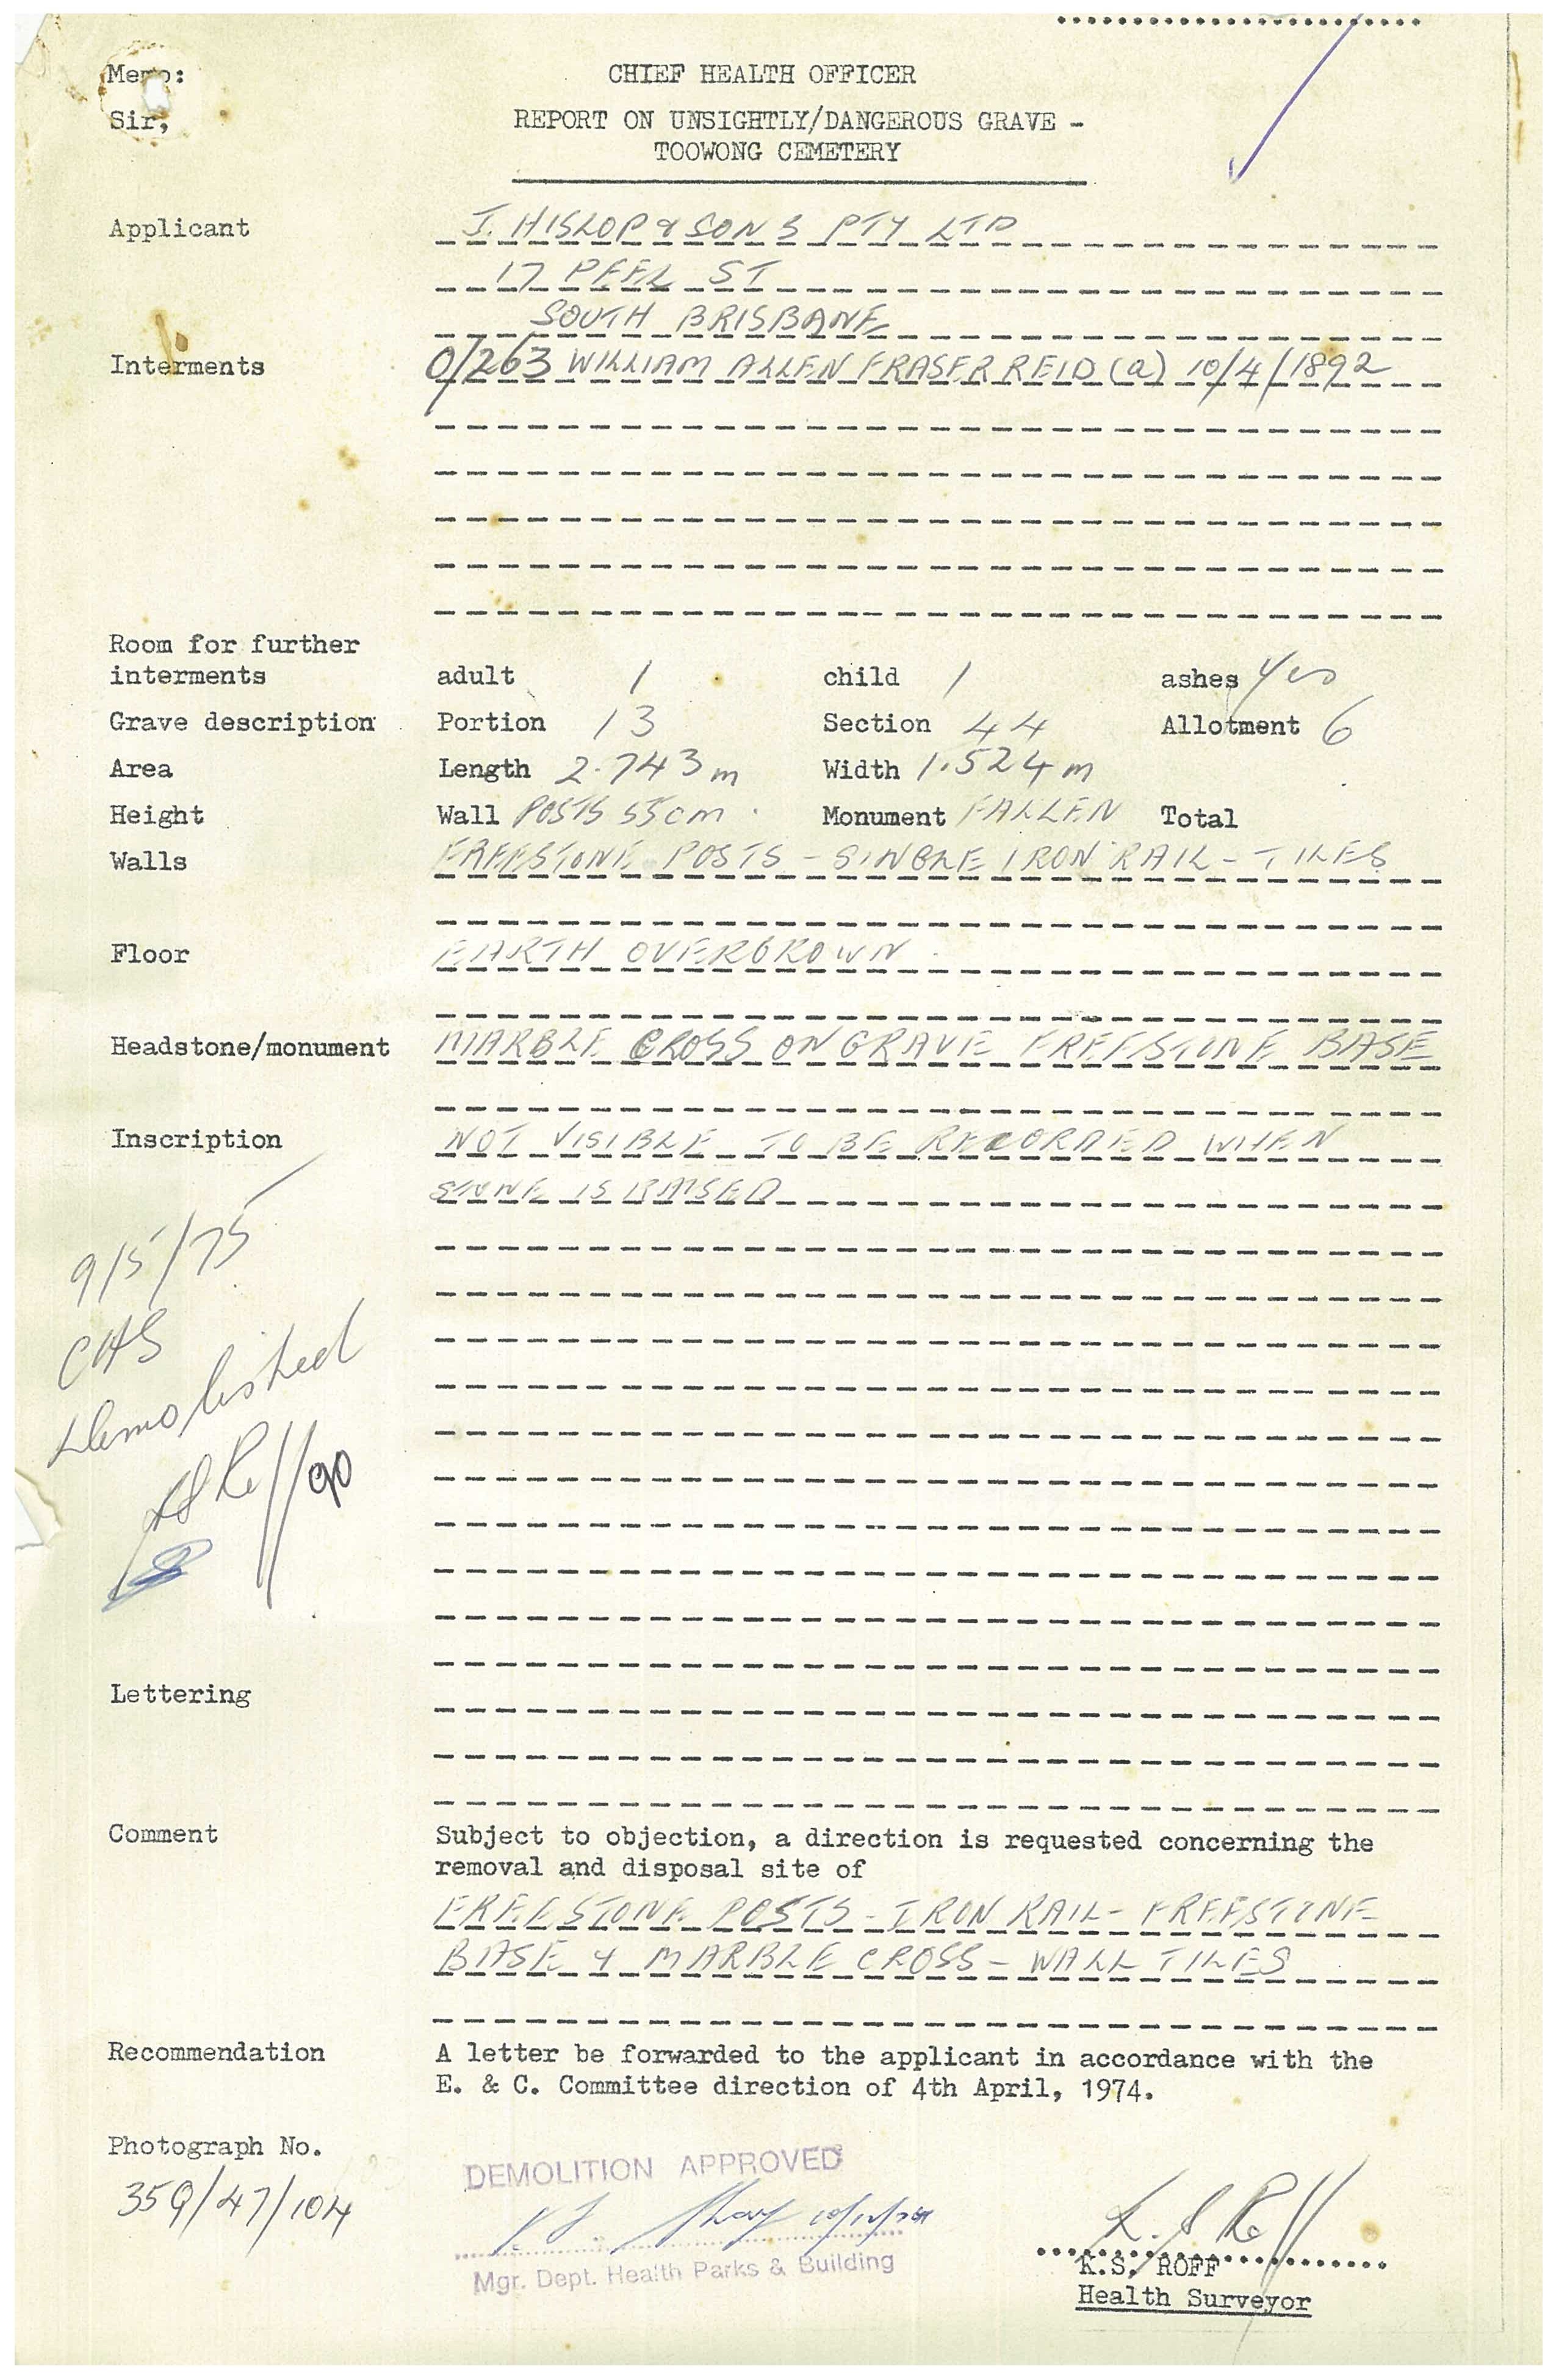 Memo: CHIEF HEALTH OFFICER
Sir,
REPORT ON UNSIGHTLY/DANGEROUS GRAVE -
TOOWONG CEMETERY
Applicant J. HISLOP & SONS PTY LTD
17 PEEL ST
SOUTH BRISBANE
Interments 0/263 WILLIAM ALLEN FRASER REID (a) 10/4/1892
Room for further
interments adult 1 child 1 ashes Yes
Grave description Portion 13 Section 44 Allotment 6
Area Length 2.743m Width 1.524m
Height Wall POSTS 55cm Monument FALLEN Total
Walls FREESTONE POSTS - SINGLE IRON RAIL - TILES
Floor EARTH OVERGROWN
Headstone/monument MARBLE CROSS ON GRAVE FREESTONE BASE
Inscription NOT VISIBLE TO BE RECORDED WHEN
STONE IS RAISED
9/5/75
CHS
Demolished
KS Roff
Lettering
Comment Subject to objection, a direction is requested concerning the
removal and disposal site of
FREESTONE POSTS - IRON RAIL - FREESTONE
BASE & MARBLE CROSS - WALL TILES
Recommendation A letter be forwarded to the applicant in accordance with the
E. & C. Committee direction of 4th April, 1974.
Photograph No.
359/47/104
DEMOLITION APPROVED
Mgr. Dept. Health Parks & Building
K. S Roff
K.S. ROFF
Health Surveyor